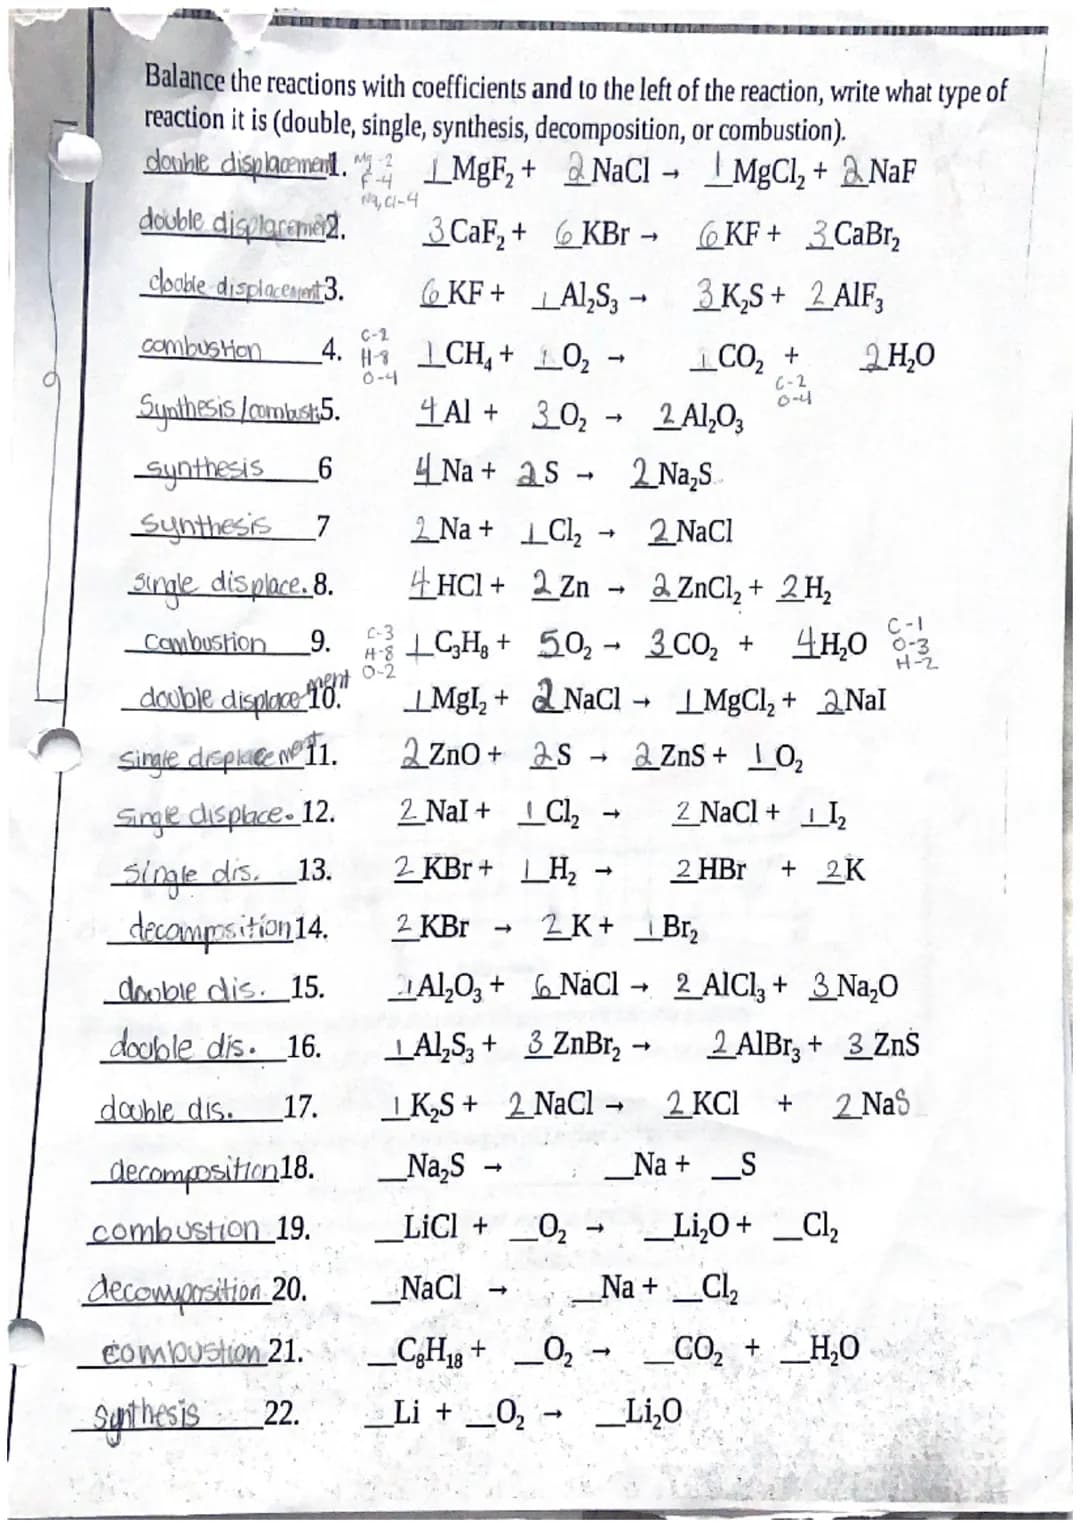 Balance the reactions with coefficients and to the left of the reaction, write what type of
reaction it is (double, single, synthesis, decomposition, or combustion).
double displacement 1. Mg-2 F-4 Na,Cl-4 1 MgF₂ + 2 NaCl → 1 MgCl₂ + 2 NaF
double displacement 2. 3 CaF₂ + 6 KBr → 6 KF + 3 CaBr₂
double displacement 3. 6 KF + 1 Al₂S₃ → 3 K₂S + 2 AlF₃
combustion 4. C-2 H-8 O-4 1 CH₄ + 1 O₂ → 1 CO₂ + 2 H₂O
C-2
O-4
Synthesis/combusti 5. 4 Al + 3 O₂ → 2 Al₂O₃
synthesis 6 4 Na + 2 S → 2 Na₂S
synthesis 7 2 Na + 1 Cl₂ → 2 NaCl
single displace. 8. 4 HCl + 2 Zn → 2 ZnCl₂ + 2 H₂
combustion 9. C-3 H-8 O-2 1 C₃H₈ + 5 O₂ → 3 CO₂ + 4 H₂O C-1 O-3 H-2
double displacement 10. 1 MgI₂ + 2 NaCl → 1 MgCl₂ + 2 NaI
single displacement 11. 2 ZnO + 2 S → 2 ZnS + 1 O₂
single displace. 12. 2 NaI + 1 Cl₂ → 2 NaCl + 1 I₂
single dis. 13. 2 KBr + 1 H₂ → 2 HBr + 2 K
decomposition 14. 2 KBr → 2 K + 1 Br₂
double dis. 15. 1 Al₂O₃ + 6 NaCl → 2 AlCl₃ + 3 Na₂O
double dis. 16. 1 Al₂S₃ + 3 ZnBr₂ → 2 AlBr₃ + 3 ZnS
double dis. 17. 1 K₂S + 2 NaCl → 2 KCl + 2 NaS
decomposition 18. __Na₂S → __Na + __S
combustion 19. __LiCl + __O₂ → __Li₂O + __Cl₂
decomposition 20. __NaCl → __Na + __Cl₂
combustion 21. __C₈H₁₈ + __O₂ → __CO₂ + __H₂O
synthesis 22. __Li + __O₂ → __Li₂O